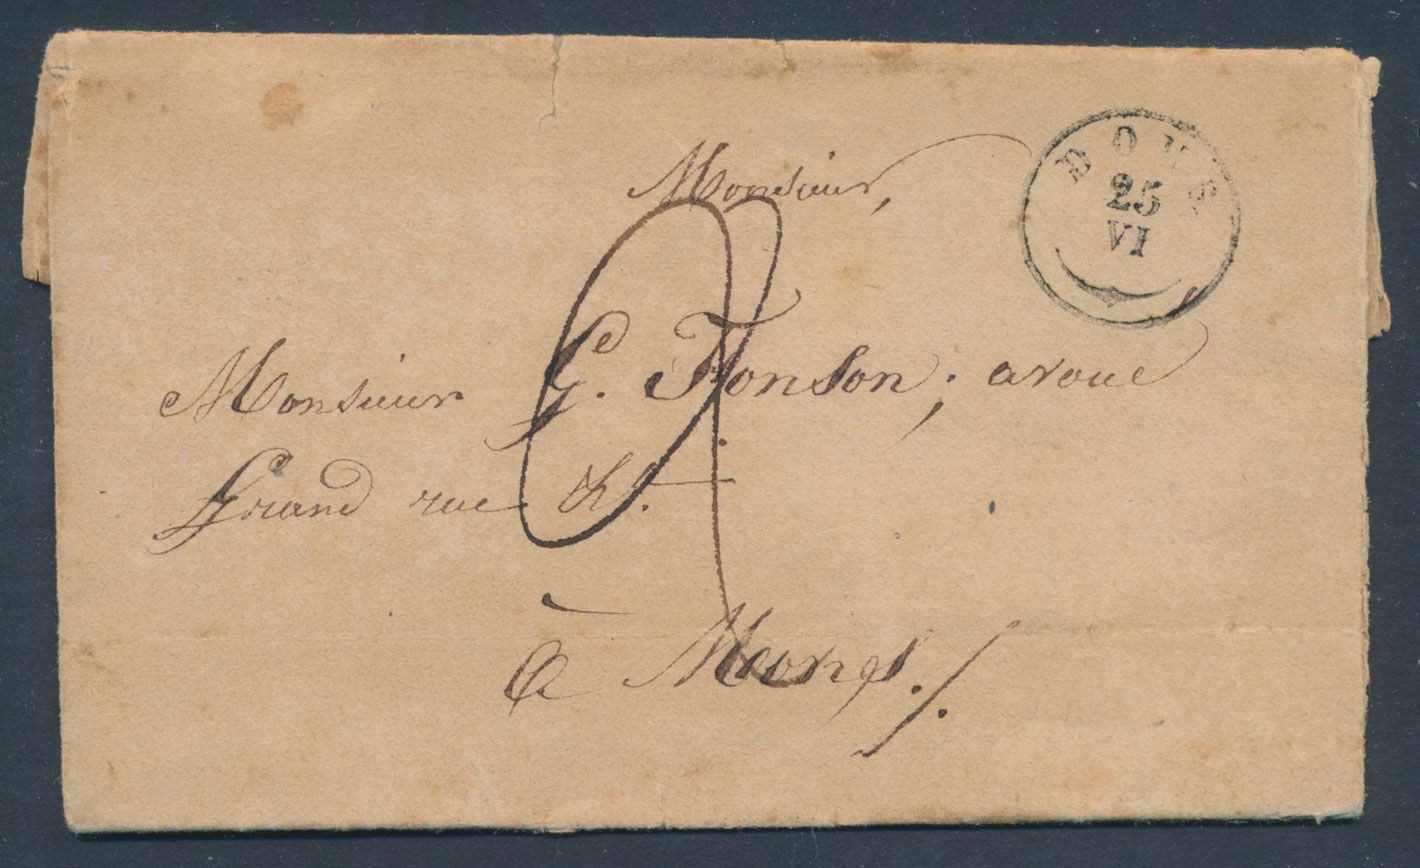 Monsieur,
DOUR
25
VI
Monsieur G. Fonson, avoué
Grand rue
à Mons.